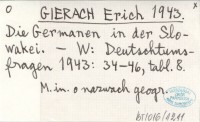 o
x
GIERACH Erich 1943.
Die Germanen in der Slo-
wakei. – W: Deutschtums-
fragen 1943: 34–46, tabl. 8.
M.in. o nazwach geogr.